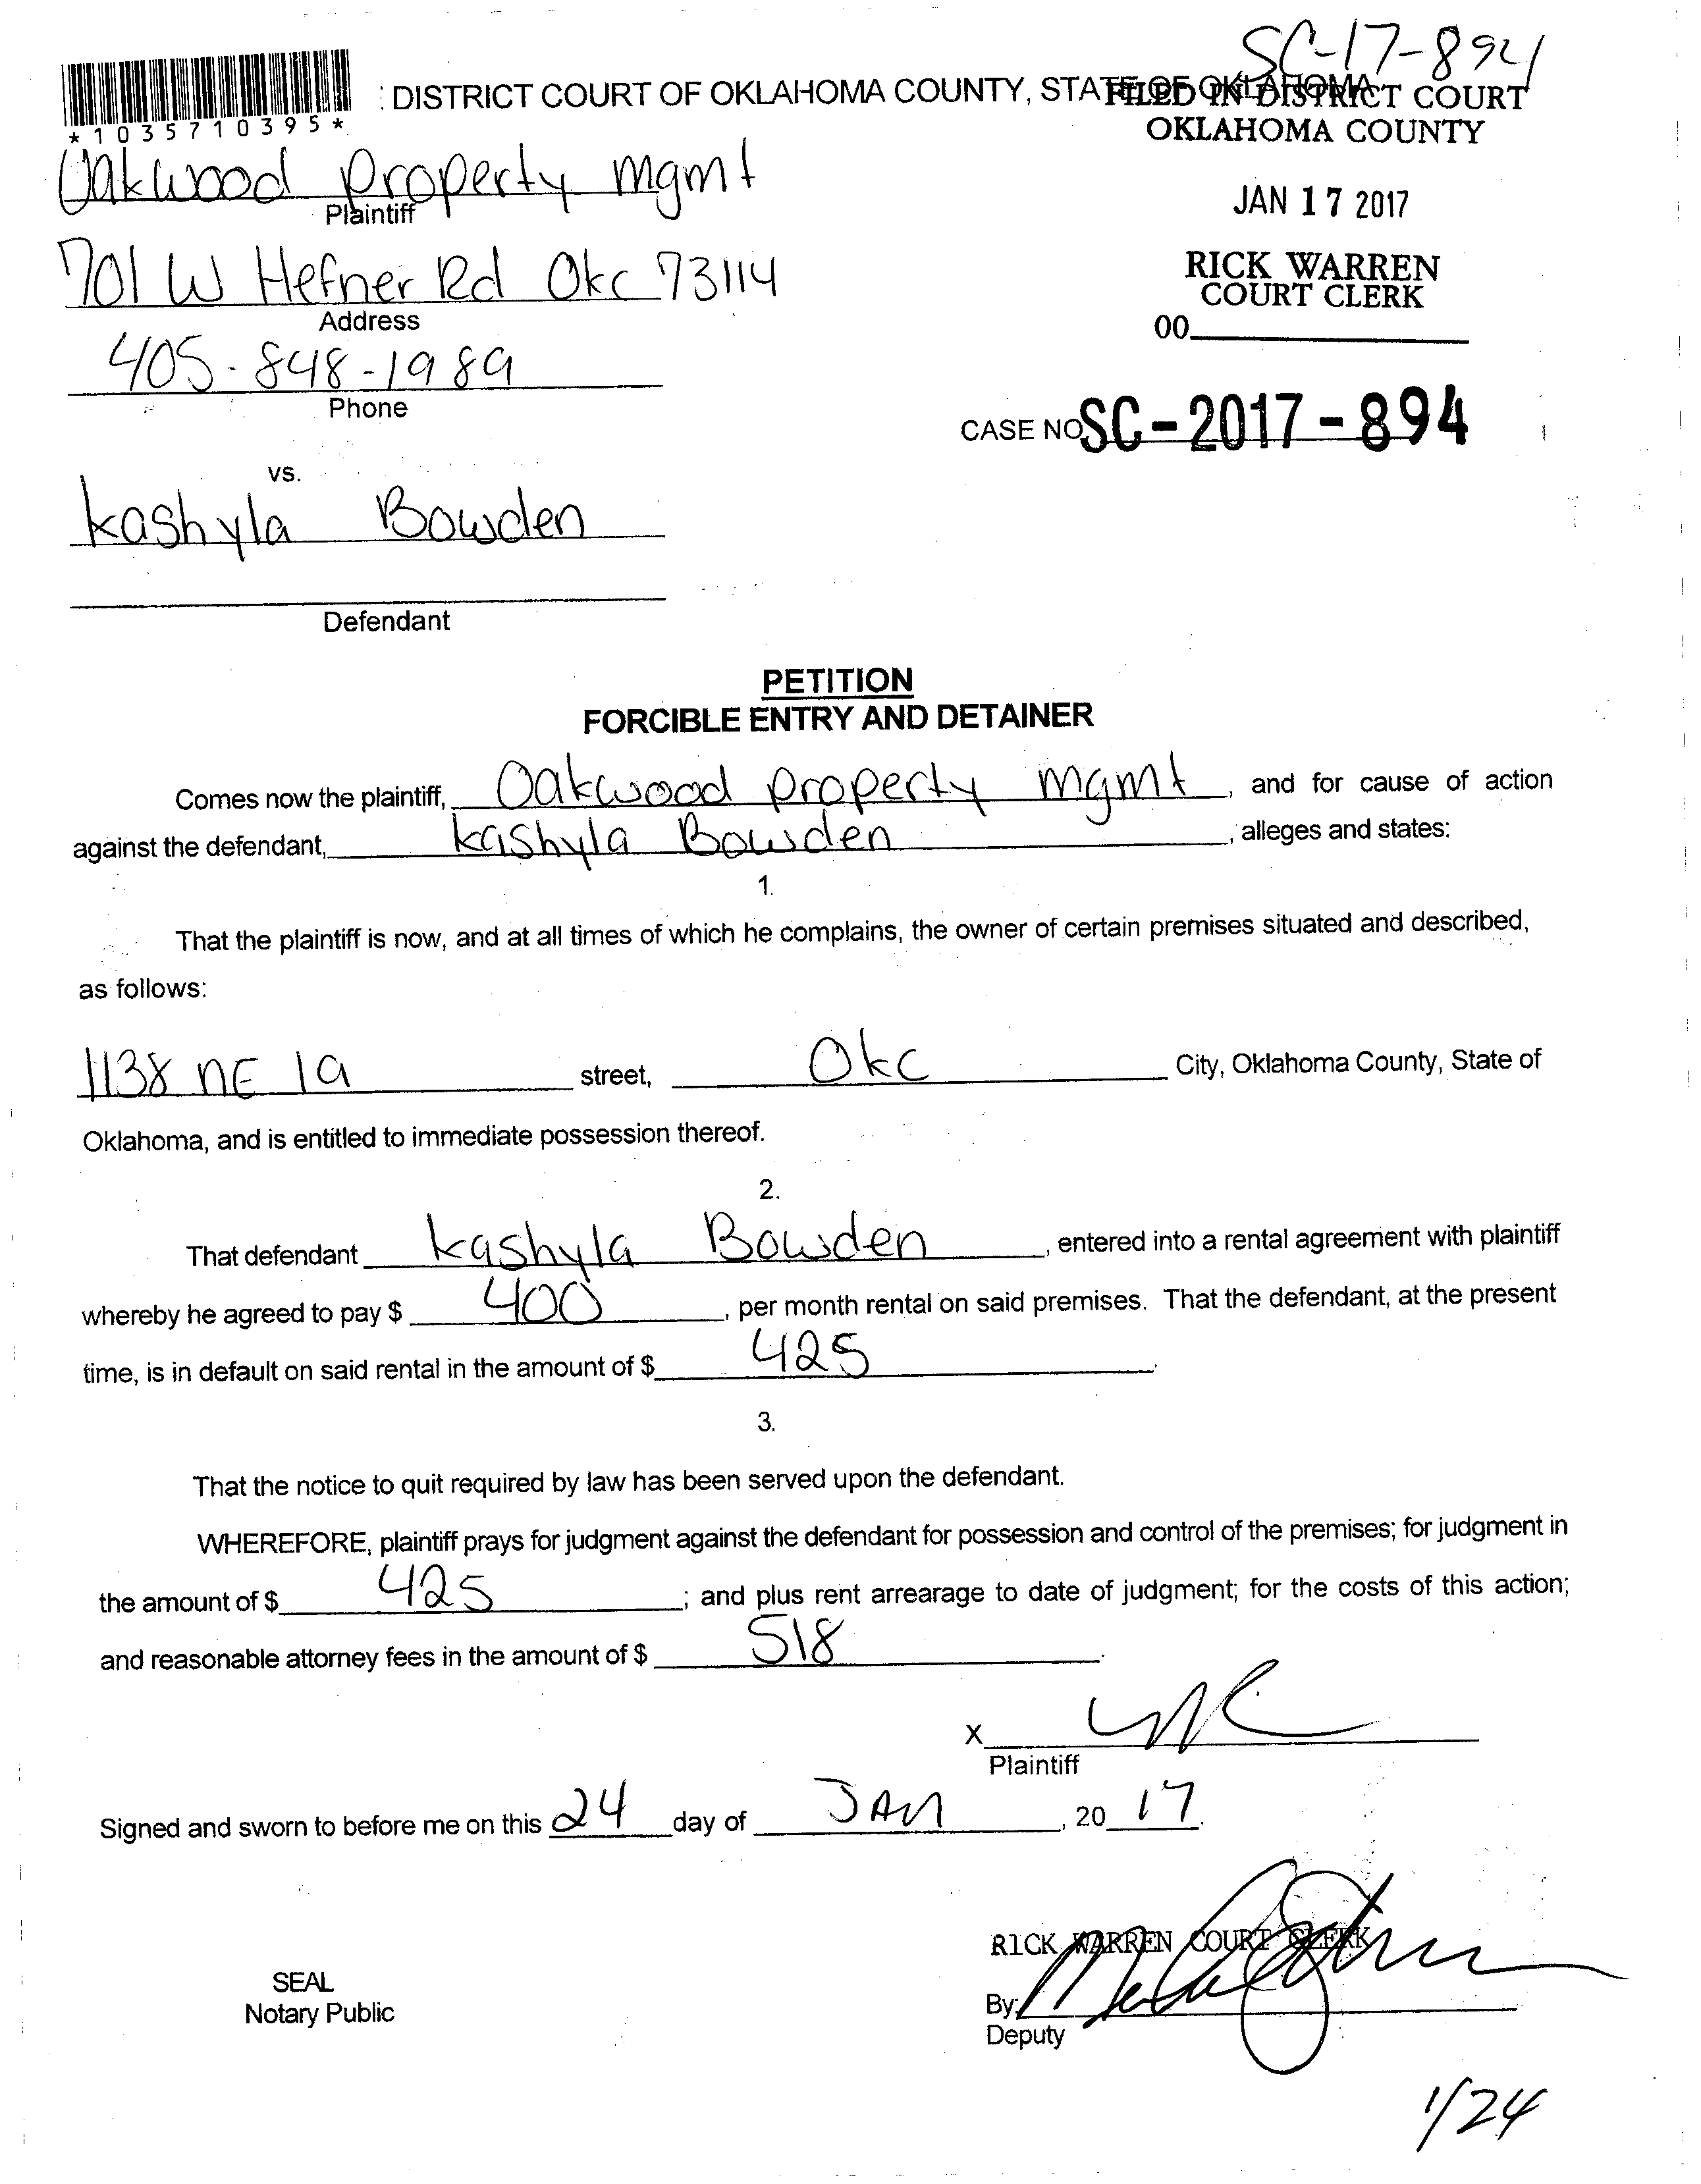 SC-17-894
: DISTRICT COURT OF OKLAHOMA COUNTY, STATE OF OKLAHOMA
FILED IN DISTRICT COURT
OKLAHOMA COUNTY
*1035710395*
Oakwood property mgmt
Plaintiff
JAN 17 2017
701 W Hefner Rd Okc 73114
Address
RICK WARREN
COURT CLERK
00
405-848-1989
Phone
CASE NO SC-2017-894
vs.
Kashyla Bowden
Defendant
PETITION
FORCIBLE ENTRY AND DETAINER
Comes now the plaintiff, Oakwood property mgmt, and for cause of action
against the defendant, Kashyla Bowden, alleges and states:
1.
That the plaintiff is now, and at all times of which he complains, the owner of certain premises situated and described,
as follows:
1138 NE 19 street, Okc City, Oklahoma County, State of
Oklahoma, and is entitled to immediate possession thereof.
2.
That defendant Kashyla Bowden, entered into a rental agreement with plaintiff
whereby he agreed to pay $ 400, per month rental on said premises. That the defendant, at the present
time, is in default on said rental in the amount of $ 425.
3.
That the notice to quit required by law has been served upon the defendant.
WHEREFORE, plaintiff prays for judgment against the defendant for possession and control of the premises; for judgment in
the amount of $ 425; and plus rent arrearage to date of judgment; for the costs of this action;
and reasonable attorney fees in the amount of $ 518.
X
Plaintiff
Signed and sworn to before me on this 24 day of JAN, 20 17.
RICK WARREN COURT CLERK
SEAL
Notary Public
By:
Deputy
1/24